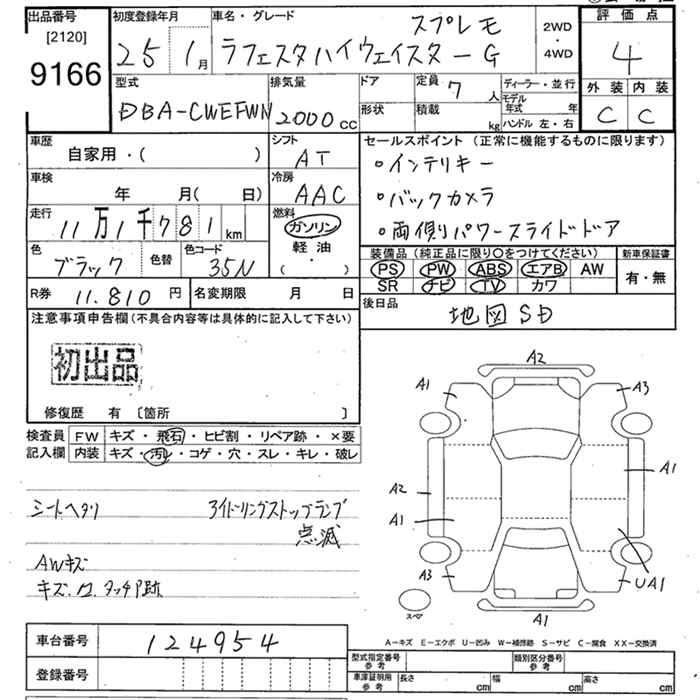 出品番号
[2120]
9166
初度登録年月
25年1月
車名・グレード
スプレモ
ラフェスタハイウェイスターG
2WD
・
4WD
評価点
4
外装 内装
C C
型式
DBA-CWEFWN
排気量
2000 cc
ドア
形状
定員 7 人
積載 kg
ディーラー・並行
モデル年式 年
ハンドル 左・右
車歴
自家用・( )
シフト
AT
車検
年 月( 日)
冷房
AAC
走行
11万1千781km
燃料
ガソリン
軽油
( ・ )
色
ブラック
色替
色コード
35N
R券 11.810円
名変期限 月 日
セールスポイント(正常に機能するものに限ります)
・インテリキー
・バックカメラ
・両側パワースライドドア
装備品(純正品に限り○をつけてください)
PS PW ABS エアB AW
SR ナビ TV カワ
新車保証書
有・無
後日品
地図SD
注意事項申告欄(不具合内容等は具体的に記入して下さい)
初出品
修復歴 有〔箇所 〕
検査員記入欄
FW キズ・飛石・ヒビ割・リペア跡・×要
内装 キズ・汚レ・コゲ・穴・スレ・キレ・破レ
シートヘタリ
アイドリングストップランプ
点滅
AWキズ
キズ.ワ.タッチP跡
A2
A1
A3
A1
A2
A1
A3
UA1
A1
スペア
A-キズ E-エクボ U-凹み W-補修跡 S-サビ C-腐食 XX-交換済
車台番号
124954
登録番号
型式指定番号 参考
類別区分番号 参考
車庫証明用 参考
長さ cm
幅 cm
高さ cm